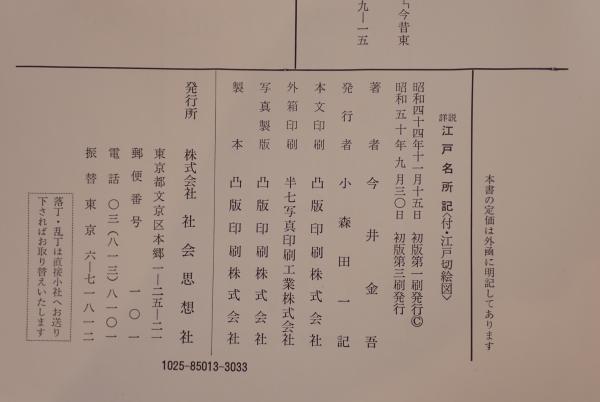 「今昔東
九―一五
本書の定価は外函に明記してあります
詳説 江戸名所記〈付・江戸切絵図〉
昭和四十四年十一月十五日 初版第一刷発行©
昭和五十年九月三〇日 初版第三刷発行
著者 今井金吾
発行者 小森田一記
本文印刷 凸版印刷株式会社
外箱印刷 半七写真印刷工業株式会社
写真製版 凸版印刷株式会社
製本 凸版印刷株式会社
発行所 株式会社 社会思想社
東京都文京区本郷一―二五―二一
郵便番号 一〇一
電話 〇三(八一三)八一〇一
振替東京 六―七一八一二
落丁・乱丁は直接小社へお送り
下さればお取り替えいたします
1025-85013-3033